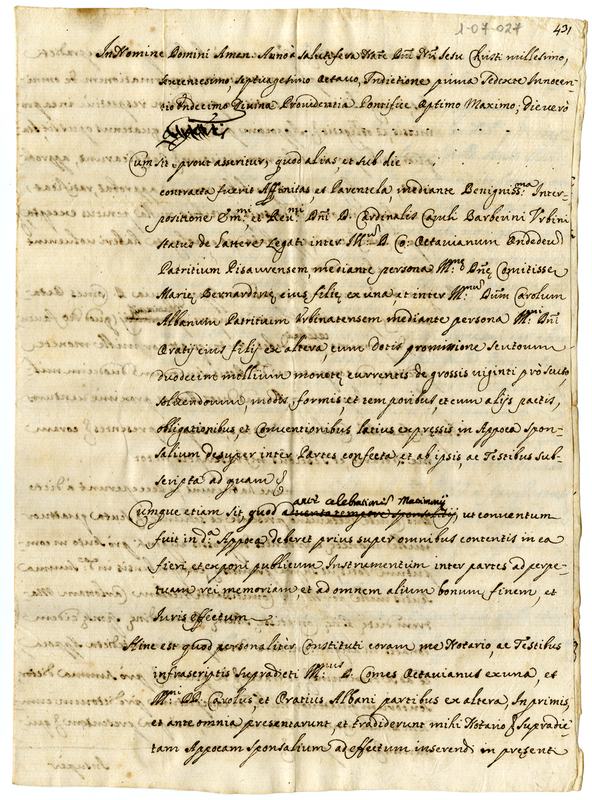 1-07-027
431
In Nomine Domini Amen. Anno à salutifera Nate Dni Nri Jesu Christi millesimo,
sexcentesimo, septuagesimo Octavo, Indictione prima Sedente Innocen-
tio Undecimo Divina Providentia Pontifice Optimo Maximo; Die verò
Cum sit, prout asseritur, quod alias et sub die
contracta fuerit Affinitas, et Parentela, mediante Benigniss.ma Inter-
positione Em.mi et Rev.mi Dni D. Cardinalis Caroli Barberini Urbini
status de Lattere Legati inter Ill.m D. Co: Octavianum Ondedeu
Patritium Pisaurensem, mediante persona Ill.me Dnę Comitissę
Marię Bernardinę eius filię ex una, et inter Ill.mum Dnm Carolum
Albanum Patritium Urbinatensem mediante persona Ill.mi Dni
Oratij eius filij ex altera cum dotis promissione scutorum
duodecim millium monetę currentis de grossis viginti prò scuto,
solvendorum, modis, formis, et temporibus, et cum alijs pactis,
obligationibus, et Conventionibus latius expressis in Appoca Spon-
salium desuper inter Partes confecta, et ab ipsis, ac Testibus sub-
scripta ad quam
antè celebrationis Matrimonij
Cumque etiam sit, quod ut conventum
fuit in d.a Appoca deberet prius super omnibus contentis in ea
fieri, et exponi publicum Instrumentum inter partes ad perpe-
tuam rei memoriam, et ad omnem alium bonum finem, et
Juris effectum
Hinc est quod personalitèr Constituti coram me Notario, ac Testibus
infrascriptis supradicti Ill.mus D. Comes Octavianus ex una, et
Ill.mi DD. Carolus, et Oratius Albani partibus ex altera, In primis,
et ante omnia presentarunt, et tradiderunt mihi Notario supradic-
tam Appocam sponsalium ad effectum inserendi in presenti